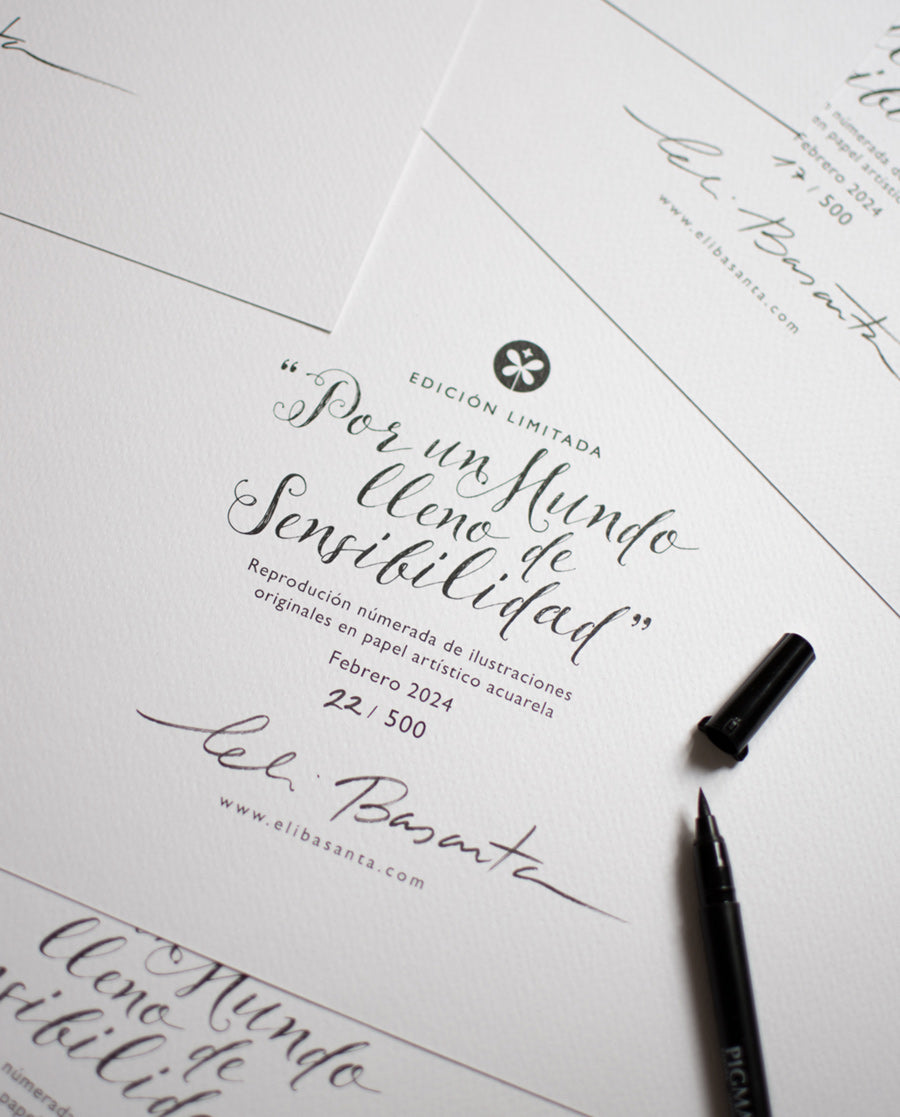 EDICIÓN LIMITADA
“Por un Mundo
lleno de
Sensibilidad”
Reprodución númerada de ilustraciones
originales en papel artístico acuarela
Febrero 2024
22 / 500
Eli Basanta
www.elibasanta.com
Febrero 2024
17 / 500
Eli Basanta
www.elibasanta.com
en papel
Mundo
lleno de
PIGMA